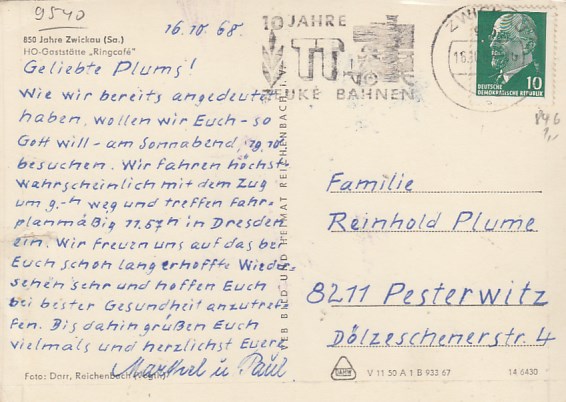 9540
850 Jahre Zwickau (Sa.)
HO-Gaststätte „Ringcafé"
16.10.68.
Geliebte Plums!
Wie wir bereits angedeutet
haben, wollen wir Euch - so
Gott will - am Sonnabend, 19.10.
besuchen. Wir fahren höchst-
wahrscheinlich mit dem Zug
um 9.-h weg und treffen fahr-
planmäßig 11.57h in Dresden
ein. Wir freuen uns auf das bei
Euch schon lang erhoffte Wieder-
sehen sehr und hoffen Euch
bei bester Gesundheit anzutref-
fen. Bis dahin grüßen Euch
vielmals und herzlichst Euere
u. Paul
Foto: Darr, Reichenbach (Vogtl.)
VEB BILD UND HEIMAT REICHENBACH i. V.
10 JAHRE
TT
ZEUKE BAHNEN
ZWICKAU
10
DEUTSCHE
DEMOKRATISCHE REPUBLIK
846
1,-
Familie
Reinhold Plume
8211 Pesterwitz
Dölzeschenerstr. 4
V 11 50 A 1 B 933 67
14 6430